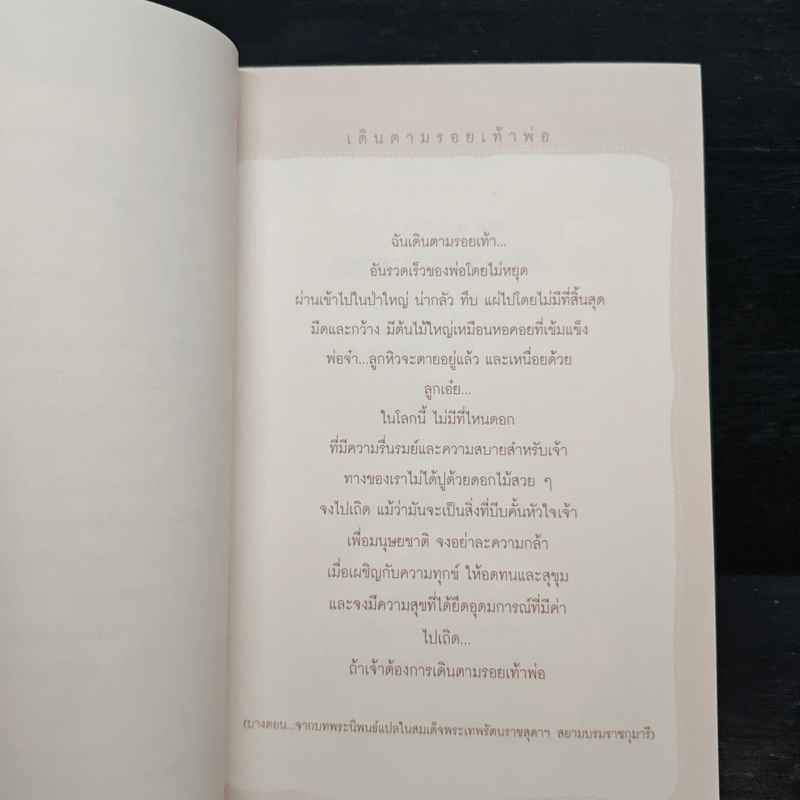 เดินตามรอยเท้าพ่อ
ฉันเดินตามรอยเท้า...
อันรวดเร็วของพ่อโดยไม่หยุด
ผ่านเข้าไปในป่าใหญ่ น่ากลัว ทึบ แผ่ไปโดยไม่มีที่สิ้นสุด
มืดและกว้าง มีต้นไม้ใหญ่เหมือนหอคอยที่เข้มแข็ง
พ่อจ๋า...ลูกหิวจะตายอยู่แล้ว และเหนื่อยด้วย
ลูกเอ๋ย...
ในโลกนี้ ไม่มีที่ไหนดอก
ที่มีความรื่นรมย์และความสบายสำหรับเจ้า
ทางของเราไม่ได้ปูด้วยดอกไม้สวย ๆ
จงไปเถิด แม้ว่ามันจะเป็นสิ่งที่บีบคั้นหัวใจเจ้า
เพื่อมนุษยชาติ จงอย่าละความกล้า
เมื่อเผชิญกับความทุกข์ ให้อดทนและสุขุม
และจงมีความสุขที่ได้ยึดอุดมการณ์ที่มีค่า
ไปเถิด...
ถ้าเจ้าต้องการเดินตามรอยเท้าพ่อ
(บางตอน...จากบทพระนิพนธ์แปลในสมเด็จพระเทพรัตนราชสุดาฯ สยามบรมราชกุมารี)